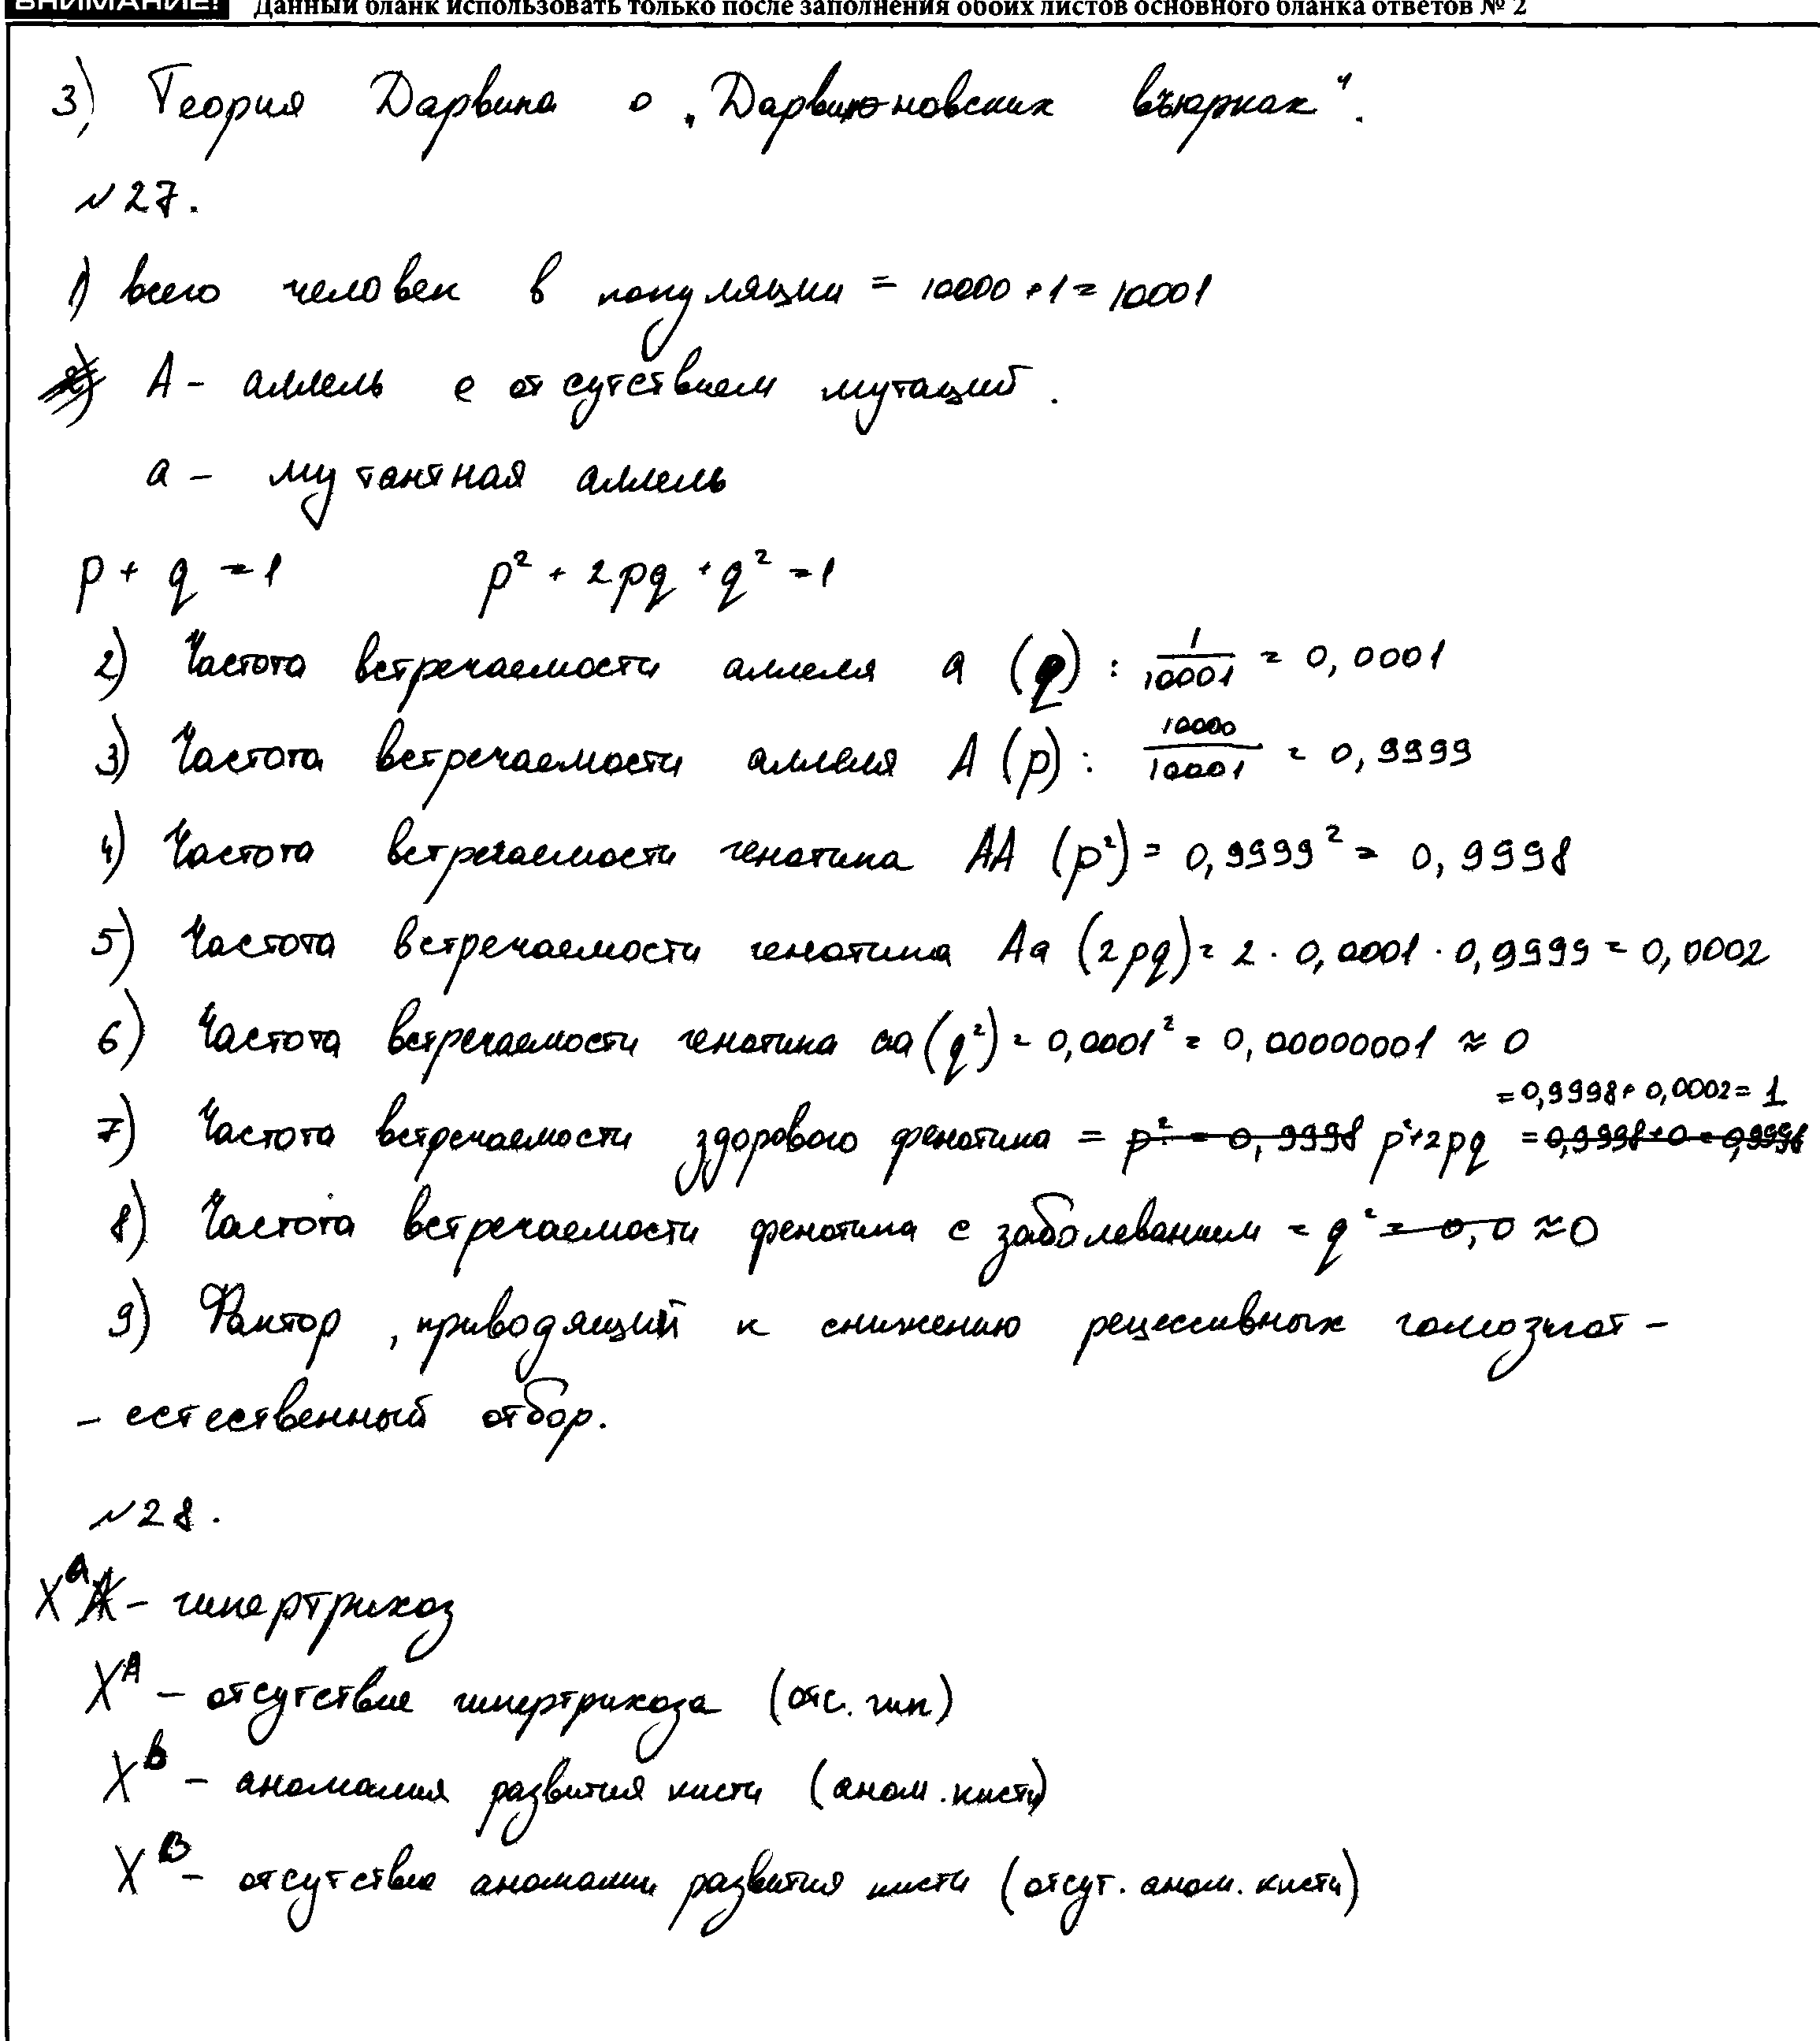 ВНИМАНИЕ! Данный бланк использовать только после заполнения обоих листов основного бланка ответов № 2
3) Теория Дарвина о „Дарвиновских въюрках".
№27.
1) всего человек в популяции = 10000+1=10001
А - аллель с отсутствием мутаций.
а - мутантная аллель
p + q = 1   p² + 2pq + q² = 1
2) Частота встречаемости аллеля а (q) : 1/10001 = 0,0001
3) Частота встречаемости аллеля А (p) : 10000/10001 = 0,9999
4) Частота встречаемости генотипа АА (p²) = 0,9999² = 0,9998
5) Частота встречаемости генотипа Аа (2pq) = 2 · 0,0001 · 0,9999 = 0,0002
6) Частота встречаемости генотипа аа (q²) = 0,0001² = 0,00000001 ≈ 0
= 0,9998 + 0,0002 = 1
7) Частота встречаемости здорового фенотипа = p² = 0,9998 p²+2pq = 0,9998+0=0,9998
8) Частота встречаемости фенотипа с заболеванием = q² = 0,0 ≈0
9) Фактор, приводящий к снижению рецессивных гомозигот -
- естественный отбор.
№28.
Xᵃ - гипертрихоз
Xᴬ - отсутствие гипертрихоза (отс. гип)
Xᵇ - аномалия развития кисти (аном. кисти)
Xᴮ - отсутствие аномалии развития кисти (отсут. аном. кисти)